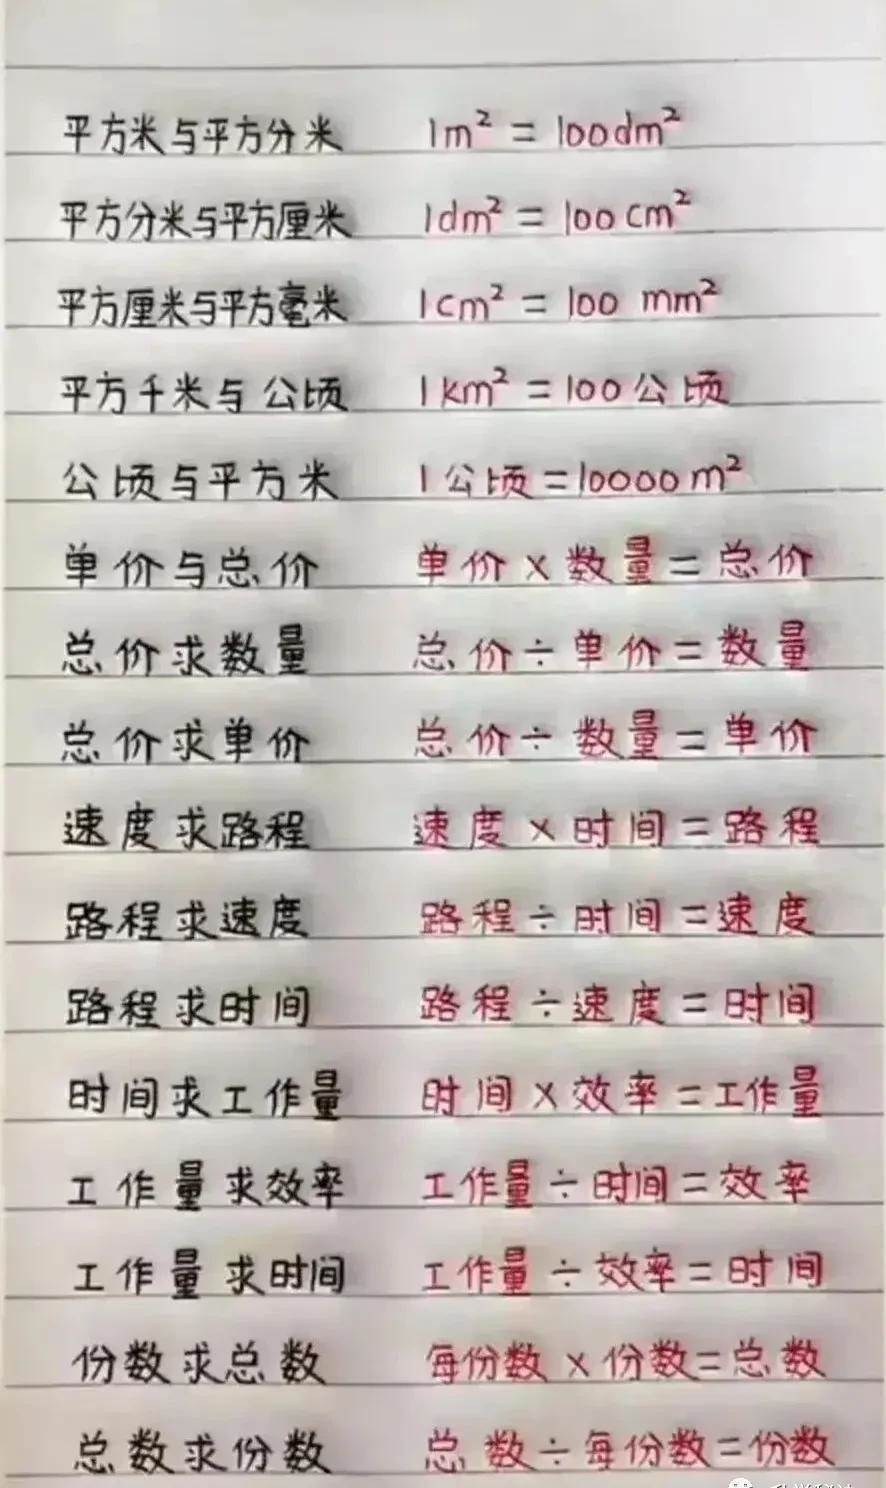 平方米与平方分米 1m² = 100dm²
平方分米与平方厘米 1dm² = 100cm²
平方厘米与平方毫米 1cm² = 100 mm²
平方千米与公顷 1km² = 100公顷
公顷与平方米 1公顷=10000m²
单价与总价 单价×数量=总价
总价求数量 总价÷单价=数量
总价求单价 总价÷数量=单价
速度求路程 速度×时间=路程
路程求速度 路程÷时间=速度
路程求时间 路程÷速度=时间
时间求工作量 时间×效率=工作量
工作量求效率 工作量÷时间=效率
工作量求时间 工作量÷效率=时间
份数求总数 每份数×份数=总数
总数求份数 总数÷每份数=份数